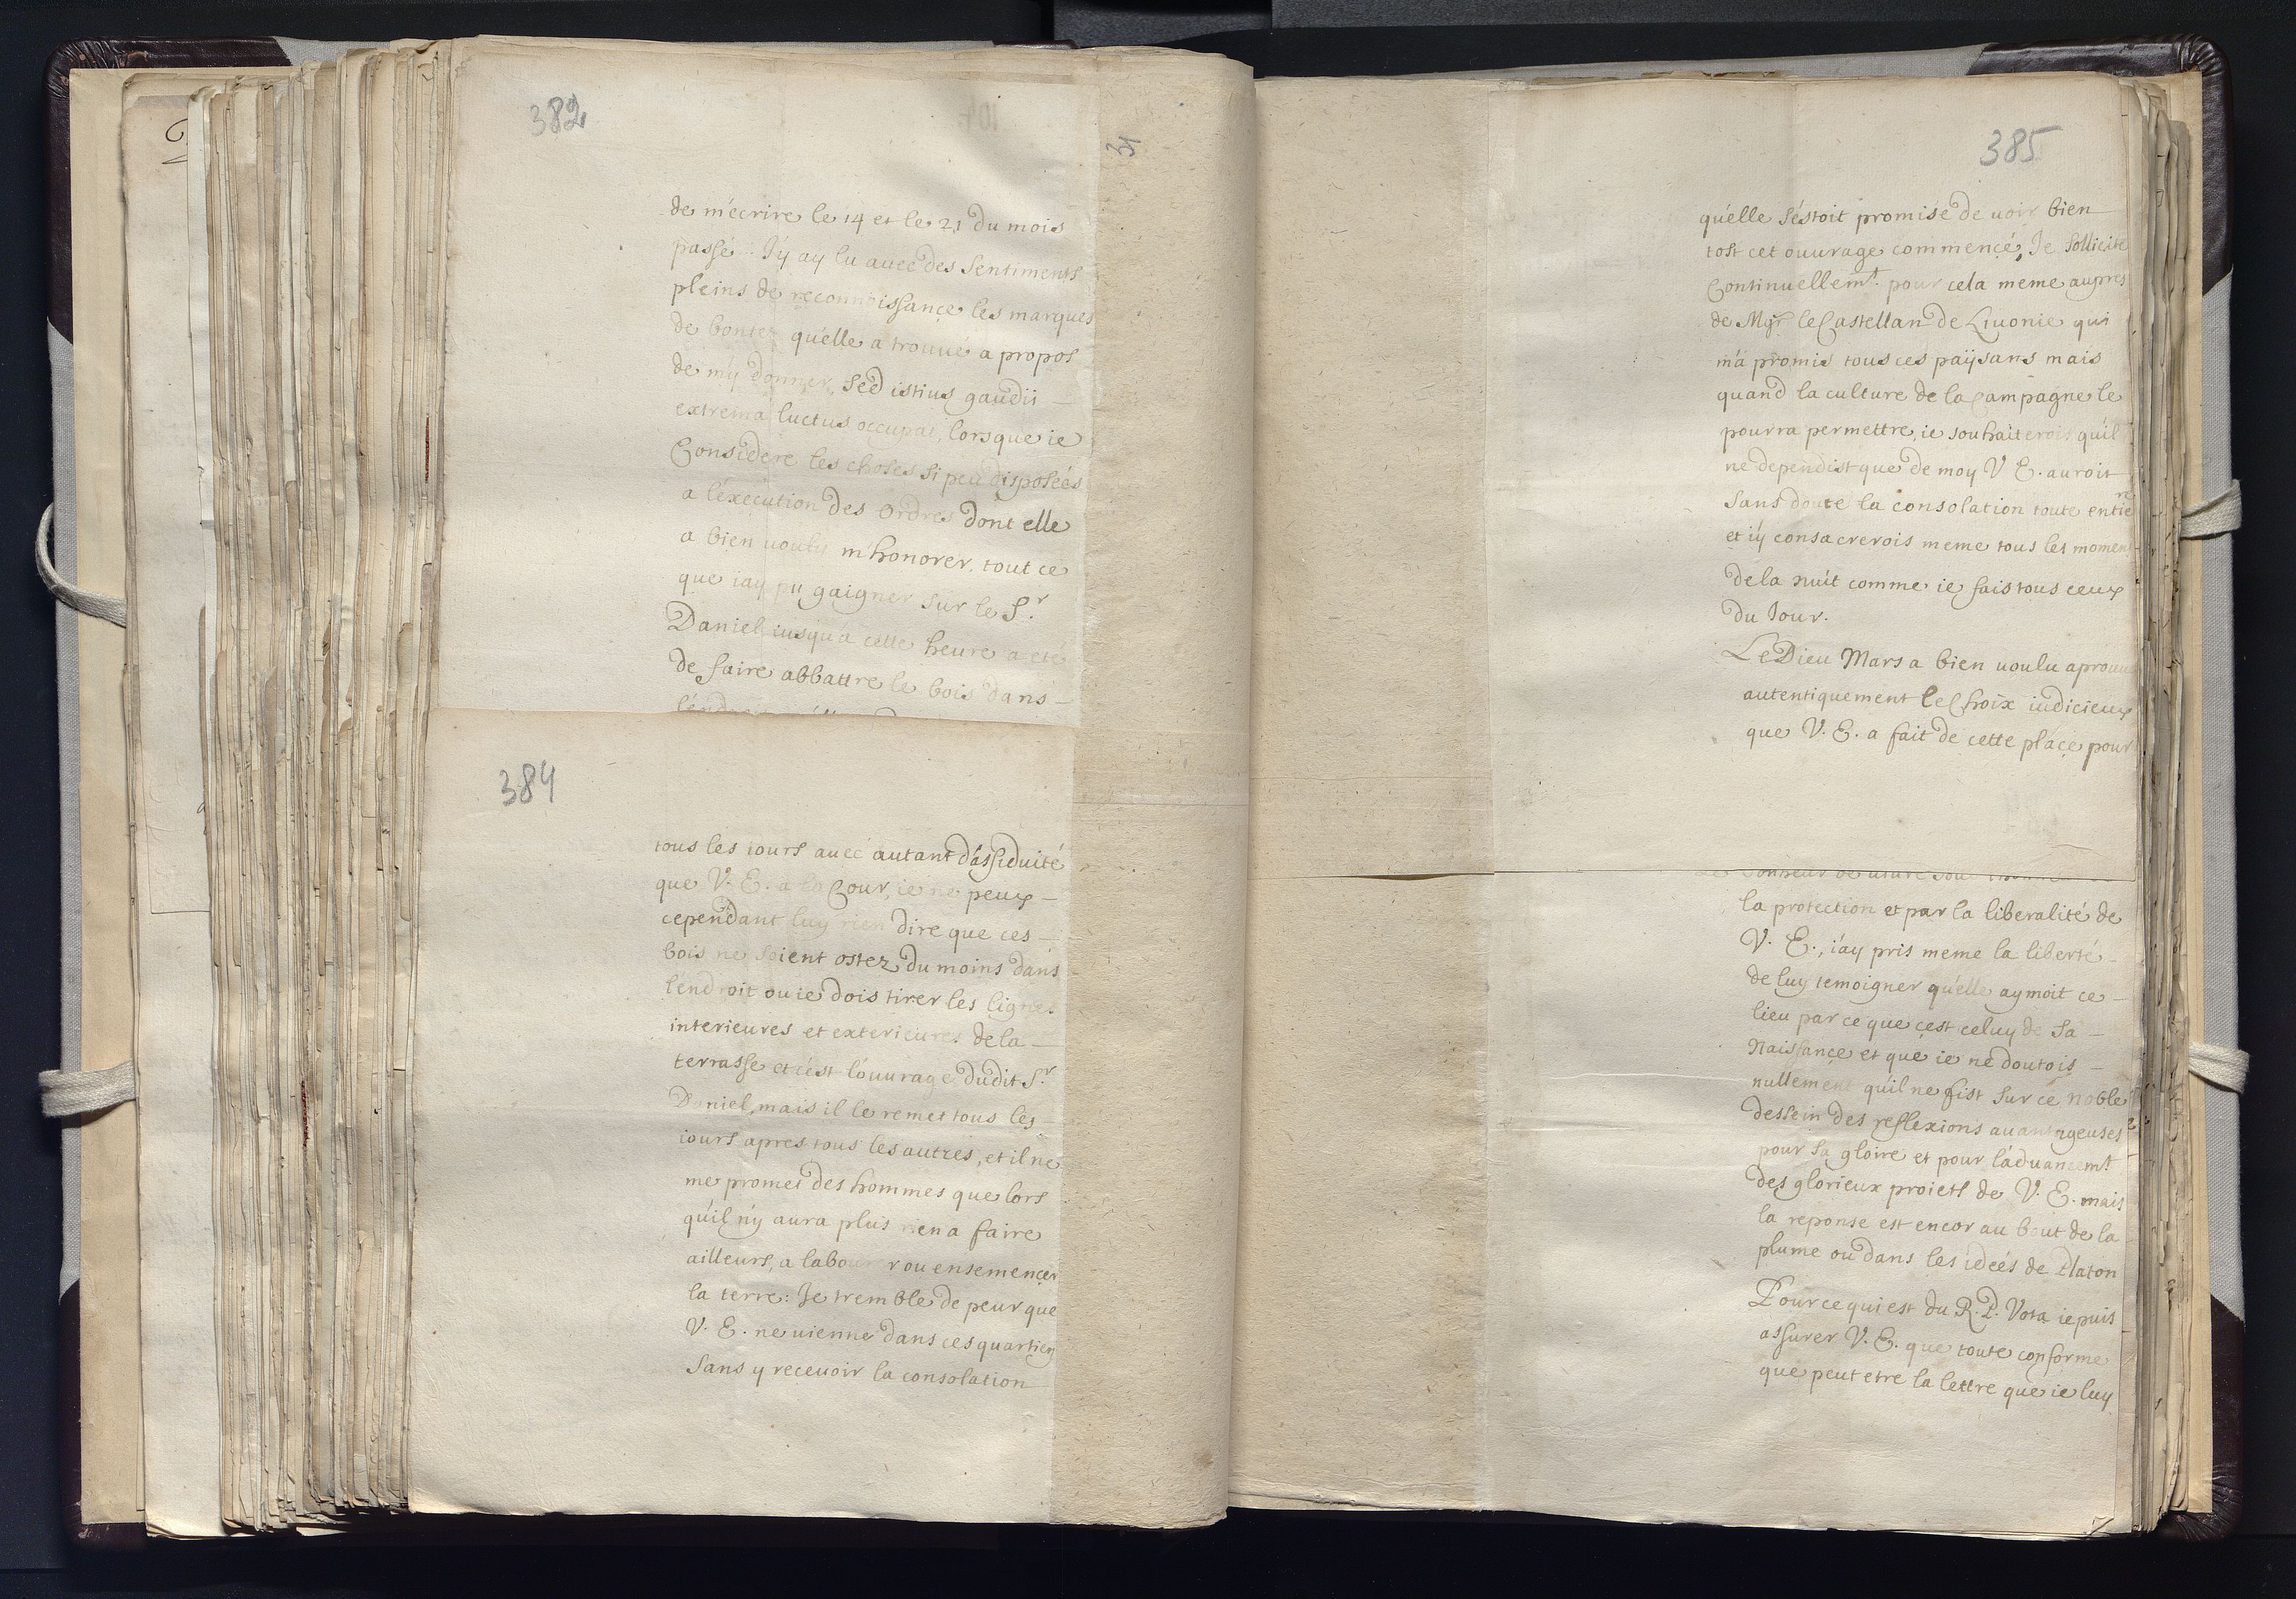 382
de m'ecrire le 14 et le 21 du mois
passé. J'y ay lu auec des Sentiments
pleins de reconnoissance les marques
de bontez qu'elle a trouué a propos
de m'y donner, Sed istius gaudii
extrema luctus occupat, lorsque ie
Considere les choses si peu disposées
a l'éxecution des Ordres dont elle
a bien uoulu m'honorer. tout ce
que iay pu gaigner sur le S.r
Daniel iusqu'a cette heure a eté
de faire abbattre le bois dans
384
tous les iours auec autant d'assiduité
que V. E. a la Cour, ie ne peux
cependant luy rien dire que ces
bois ne soient ostez du moins dans
l'endroit ou ie dois tirer les lignes
interieures et exterieures de la
terrasse et c'est l'ouurage dudit S.r
Daniel, mais il le remet tous les
iours apres tous les autres, et il ne
me promet des hommes que lors
qu'il n'y aura plus rien a faire
ailleurs, a labourer ou ensemencer
la terre: Je tremble de peur que
V. E. ne uienne dans ces quartiers
Sans y receuoir la consolation
34
385
qu'elle s'estoit promise de uoir bien
tost cet ouurage commencé, Je sollicite
Continuellem.t pour cela meme aupres
de Mgr le Castellan de Liuonie qui
m'a promis tous ces paÿsans mais
quand la culture de la Campagne le
pourra permettre, ie souhaiterois qu'il
ne dependist que de moy V E. auroit
Sans doute la consolation toute entiere
et i'y consacrerois meme tous les momens
de la nuit comme ie fais tous ceux
du Jour.
Le Dieu Mars a bien uoulu aprouuer
autentiquement le Choix iudicieux
que V. E. a fait de cette place pour
la protection et par la liberalité de
V. E., i'ay pris meme la liberté
de luy temoigner qu'elle aymoit ce
lieu par ce que c'est celuy de sa
Naissance et que ie ne doutois
nullement qu'il ne fist sur ce noble
dessein des reflexions auantageuses
pour sa gloire et pour l'aduancem.t
des glorieux proiets de V. E. mais
la reponse est encor au bout de la
plume ou dans les ideés de Platon
Pour ce qui est du R. P. Vota ie puis
assurer V. E. que toute conforme
que peut etre la lettre que ie luy